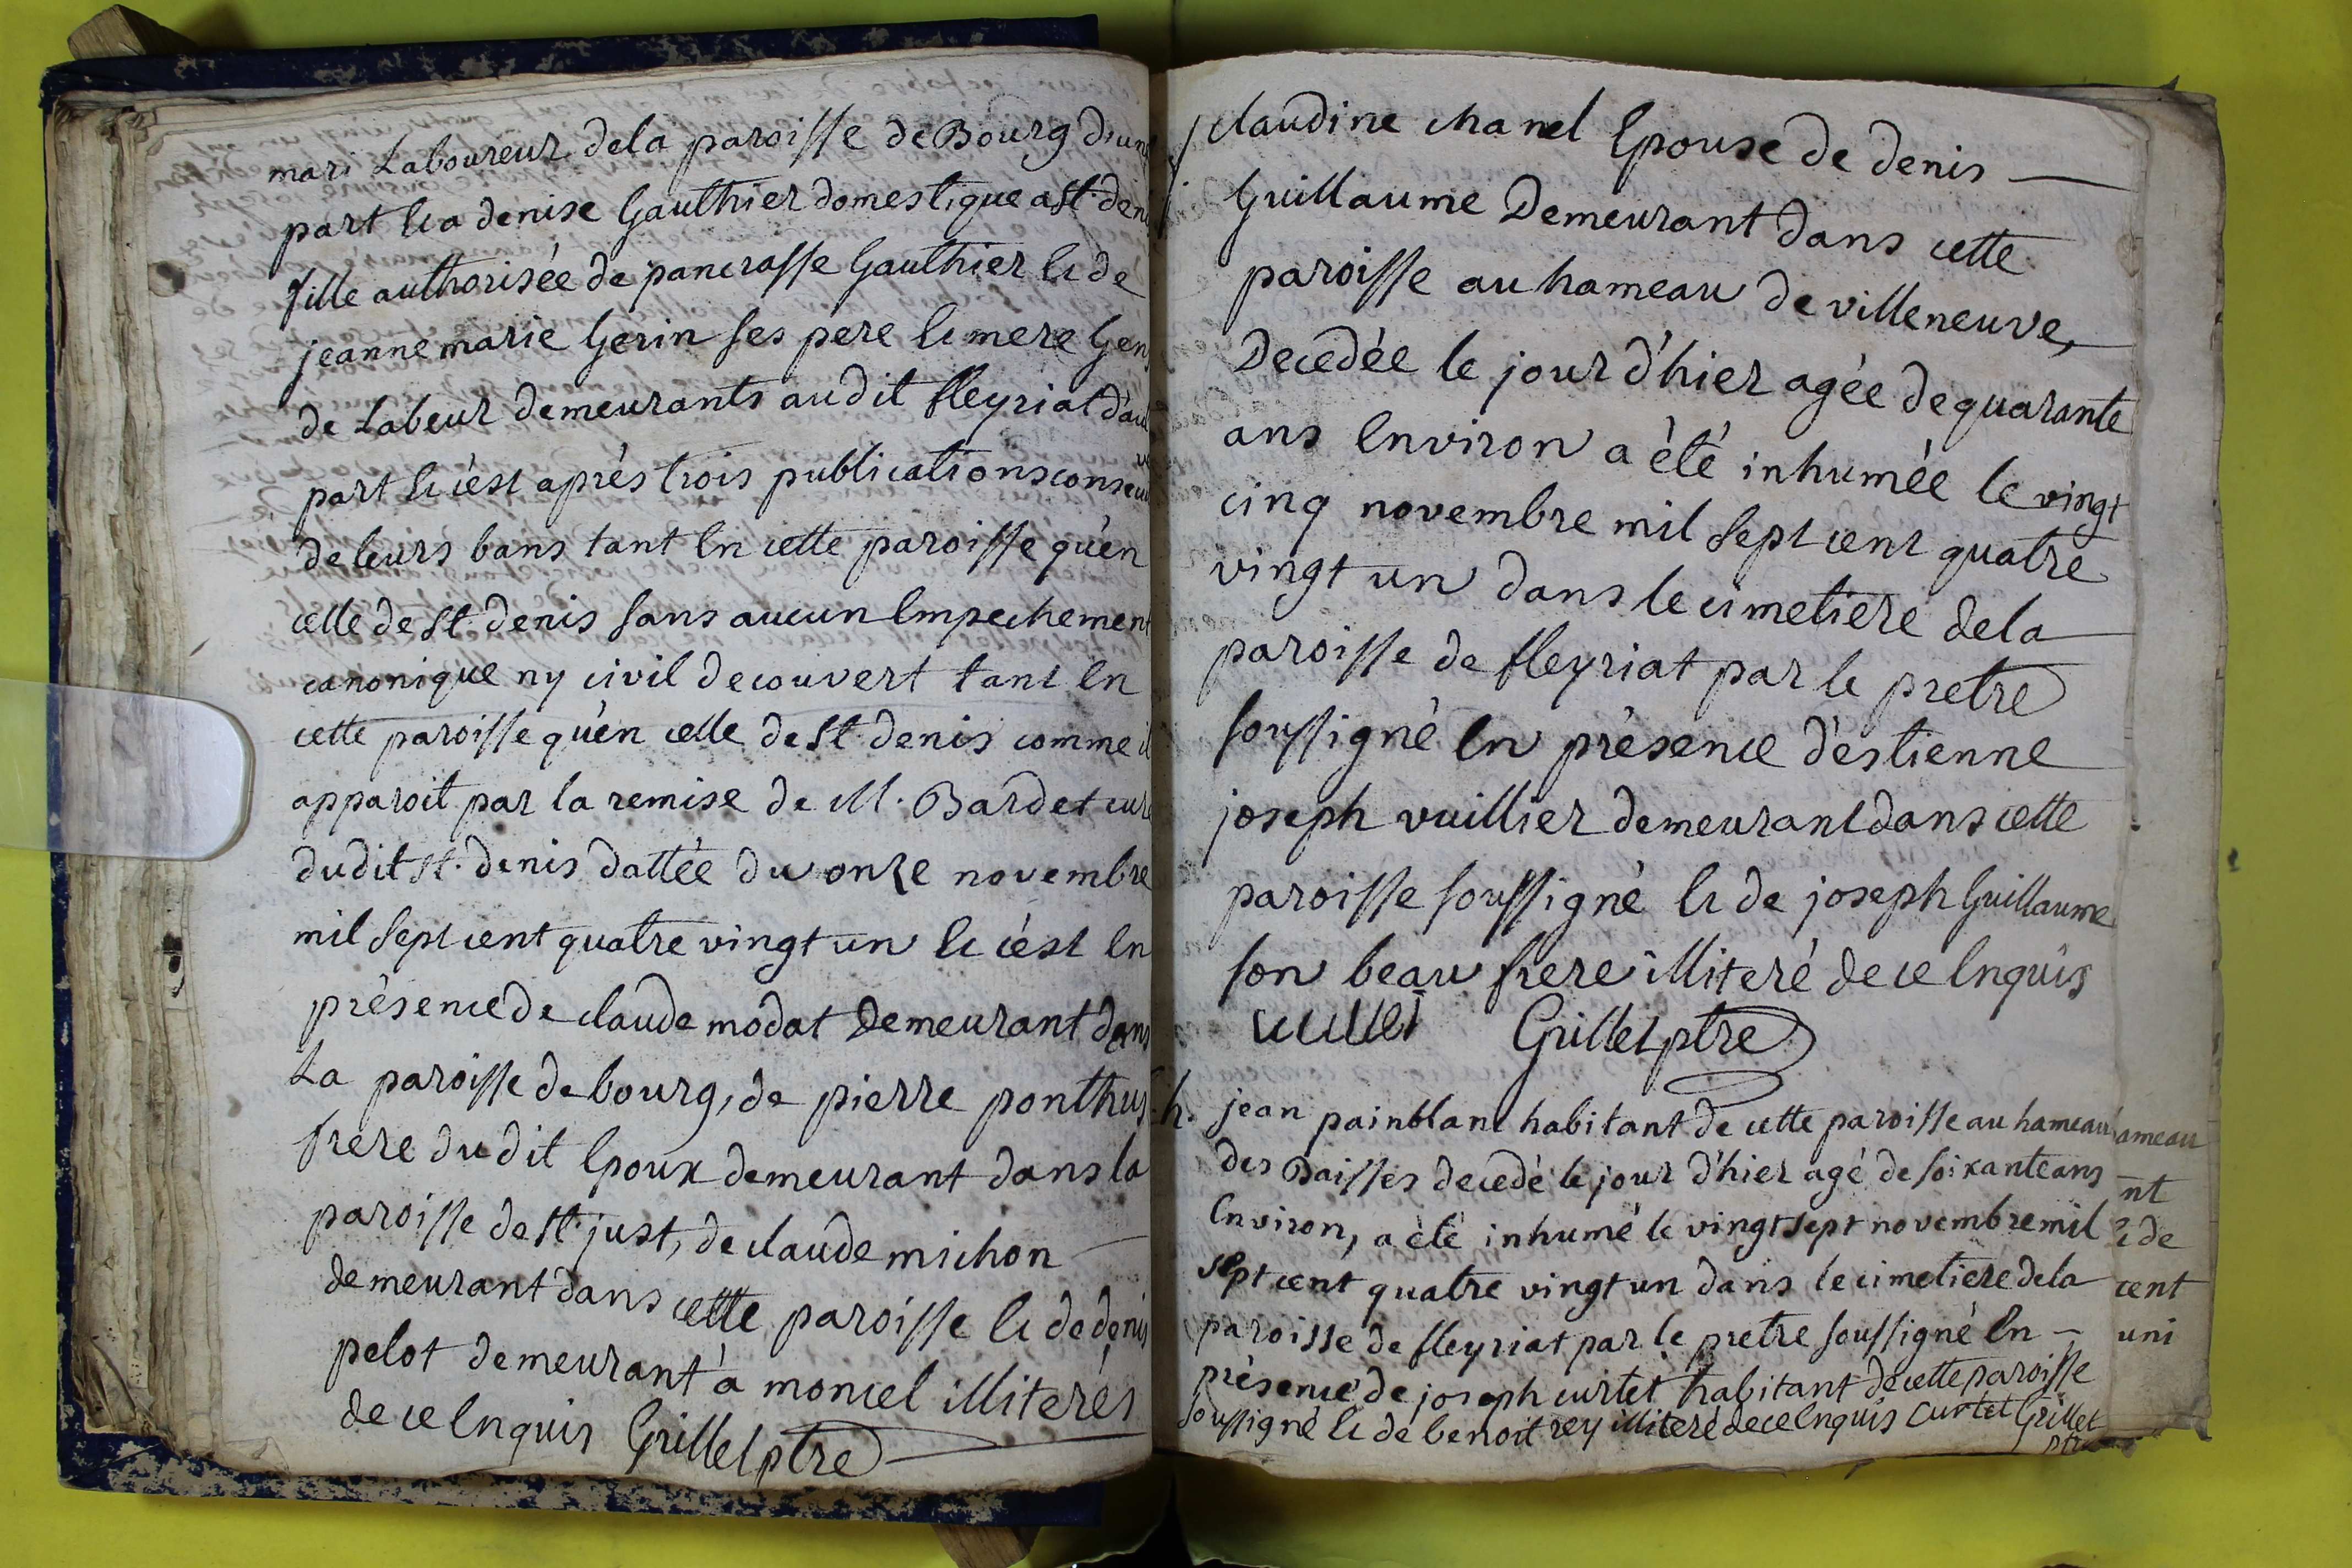 mari Laboureur dela paroisse de Bourg d'une
part et a denise Gauthier domestique a st. denis
fille authorisée de pancrasse Gauthier et de
jeanne marie Gerin ses pere et mere Gens
de Labeur demeurants audit fleyriat d'au
part et c'est après trois publications consecu
de leurs bans tant en cette paroisse qu'en
celle de st. denis sans aucun Empechement
canonique ny civil decouvert tant en
cette paroisse qu'en celle de st. denis comme il
apparoit par la remise de M. Bardet curé
dudit st. denis dattée du onze novembre
mil sept cent quatre vingt un et c'est en
présence de claude modat demeurant dans
La paroisse de bourg, de pierre ponthus
frere dudit Epoux demeurant dans la
paroisse de st. just, de claude michon
demeurant dans cette paroisse et de denis
pelot demeurant à moncel illiterés
de ce Enquis Grillet ptre
claudine chanel Epouse de denis
Guillaume Demeurant dans cette
paroisse au hameau de villeneuve,
Decedée le jour d'hier agée de quarante
ans Environ a été inhumée le vingt
cinq novembre mil sept cent quatre
vingt un dans le cimetiere dela
paroisse de fleyriat par le pretre
soussigné En présence d'estienne
joseph vuillier demeurant dans cette
paroisse soussigné et de joseph Guillaume
son beau frere illiteré de ce Enquis
Grillet ptre
h. jean painblanc habitant de cette paroisse au hameau
des Baisses decedé le jour d'hier agé de soixante ans
Environ, a été inhumé le vingt sept novembre mil
sept cent quatre vingt un dans le cimetiere dela
paroisse de fleyriat par le pretre soussigné En
présence de joseph curtet habitant de cette paroisse
soussigné et de benoit rey illiteré de ce Enquis curtet Grillet
ptre
ameau
nt
de
cent
uni